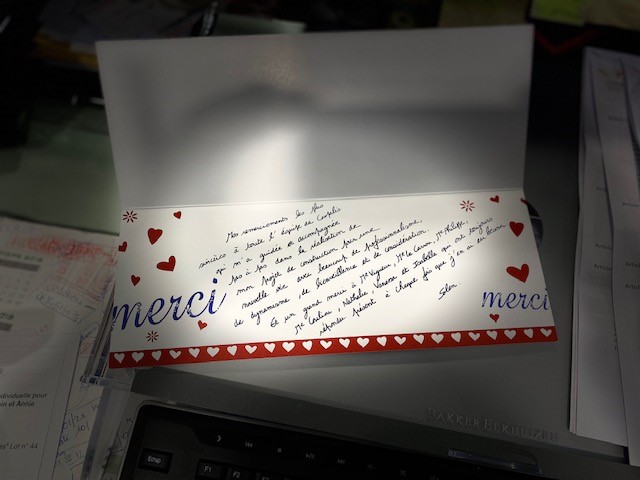 Mes remerciements les plus
sincères à toute l'équipe de
qui m'a guidée et accompagnée
pas à pas dans la réalisation de
mon projet de construction pour une
nouvelle vie avec beaucoup de professionnalisme,
de dynamisme, de bienveillance et de considération.
Et un grand merci à Mr Mr Philippe,
Me Nathalie, et Isabelle qui ont toujours
répondu présent à chaque fois que j'en ai eu besoin
merci
merci
BAKKER ELKHUIZEN
ndividuelle pour
in et Annie
Lot n° 44
ESC
F1
F2